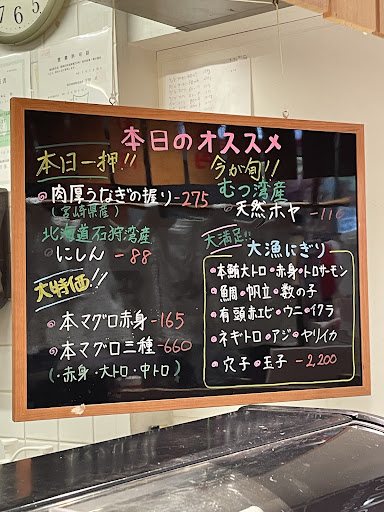 本日のオススメ
本日一押!!
肉厚うなぎの握り-275
(宮崎県産)
北海道石狩湾産
にしん - 88
大特価!!
本マグロ赤身-165
本マグロ三種-660
(・赤身・大トロ・中トロ)
今が旬!!
むつ湾産
天然ホヤ -110
大満足!!
大漁にぎり
本鮪大トロ・赤身・トロサーモン
鯛・帆立・数の子
有頭赤エビ・ウニ・イクラ
ネギトロ・アジ・ヤリイカ
穴子・玉子 -2,200